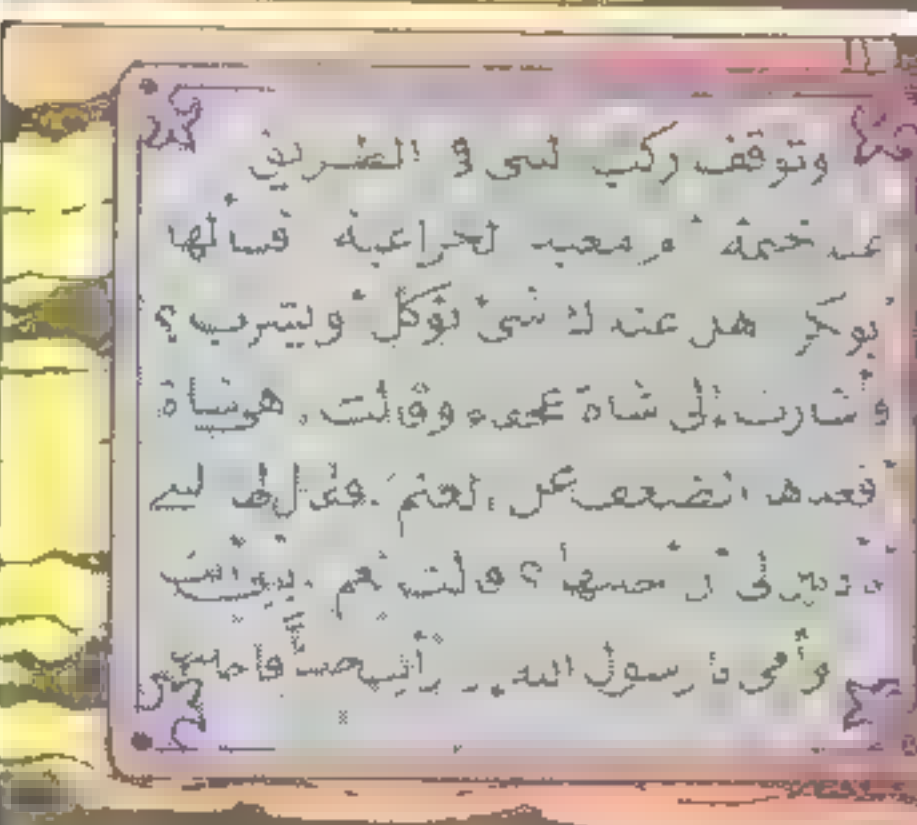 وتوقف ركب النبى فى الطريق
عند خيمة أم معبد الخزاعية فسألها
أبو بكر هل عندك شىء نؤكل أو يشرب؟
وأشارت إلى شاة عجفاء وقالت. هى شاة
أقعدها الضعف عن الغنم. فقال لها النبى
أتأذنين لى أن أحلبها؟ قالت نعم. بأبى أنت
وأمى يا رسول الله.. إن رأيت حلبا فاحلبها